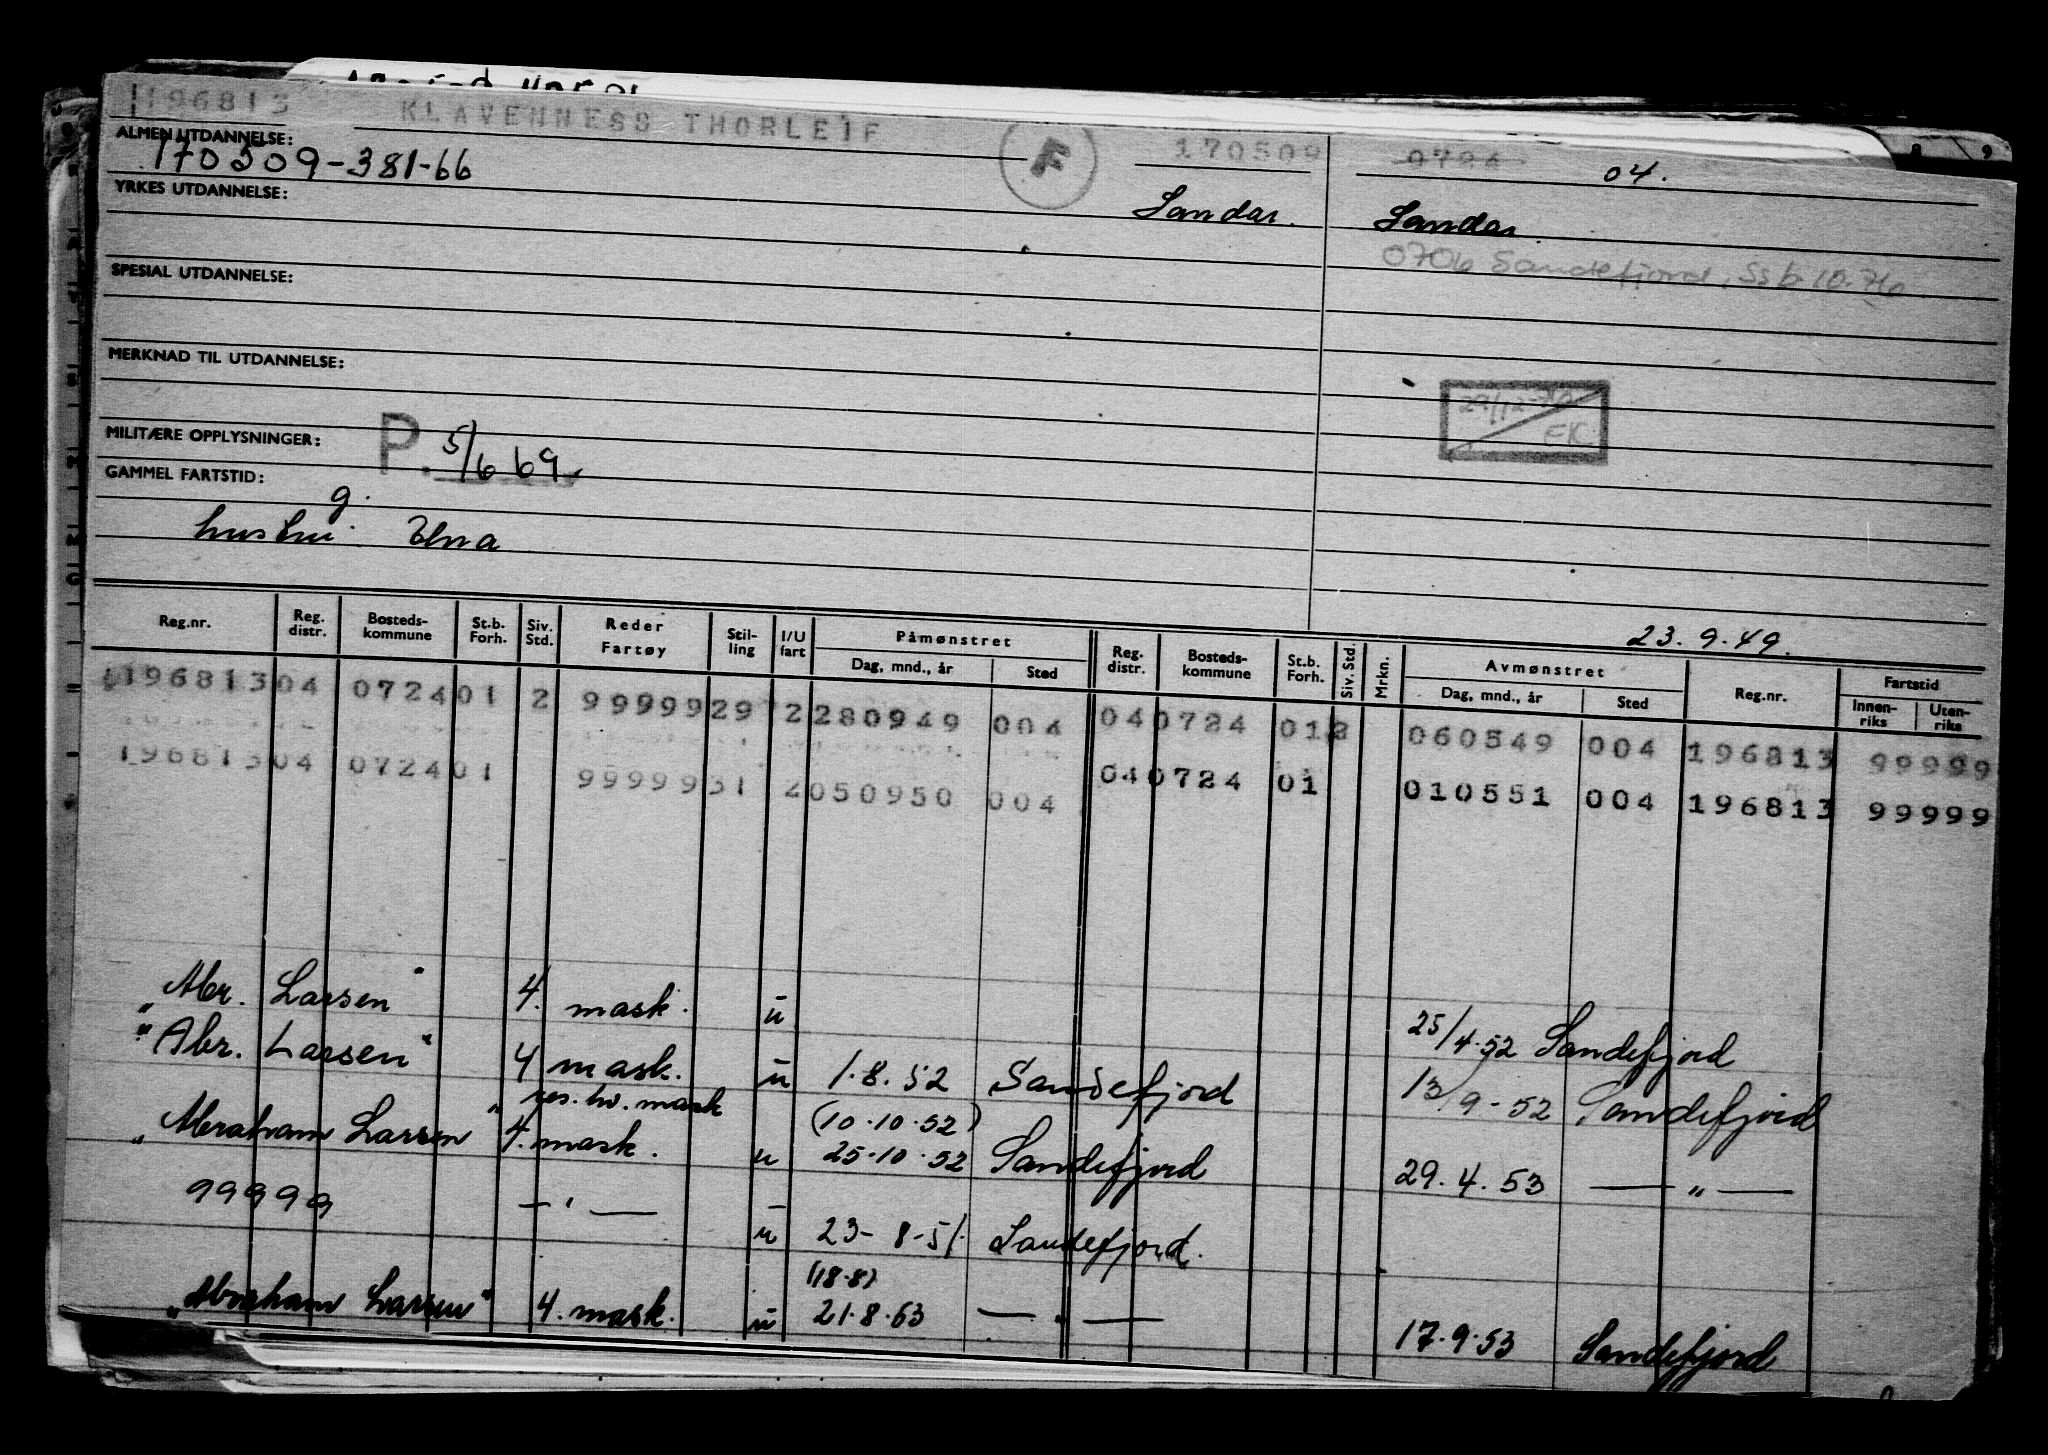 196813 KLAVENNESS THORLEIF F 170509 0724 04.
ALMEN UTDANNELSE:
170509-381-66
YRKES UTDANNELSE: Sandar. Sandar.
0706 Sandefjord, Ssb 10.76
SPESIAL UTDANNELSE:
MERKNAD TIL UTDANNELSE:
29/12-70
EK
MILITÆRE OPPLYSNINGER: P. 5/6 69
GAMMEL FARTSTID:
g.
hustru: Elna
23.9.49.
Reg.nr. Reg. distr. Bosteds-kommune St.b. Forh. Siv. Std. Reder Fartøy Stil-ling I/U fart Påmønstret Dag, mnd., år Sted Reg. distr. Bosteds-kommune St.b. Forh. Siv. Std. Mrkn. Avmønstret Dag, mnd., år Sted Reg.nr. Fartstid Innen-riks Uten-riks
196813 04 0724 01 2 99999 29 2 280949 004 04 0724 01 2 060549 004 196813 99999
196813 04 0724 01 99999 31 2 050950 004 04 0724 01 010551 004 196813 99999
"Abr. Larsen" 4. mask. u 25/4.52 Sandefjord
"Abr. Larsen" 4 mask. u 1.8.52 Sandefjord 13/9-52 Sandefjord
res. hv. mask (10.10.52)
"Abraham Larsen" 4. mask. u 25.10.52 Sandefjord 29.4.53 — " —
99999 — " — u 23-8-51. Sandefjord.
(18.8)
"Abraham Larsen" 4. mask. u 21.8.53 — " — 17.9.53 Sandefjord